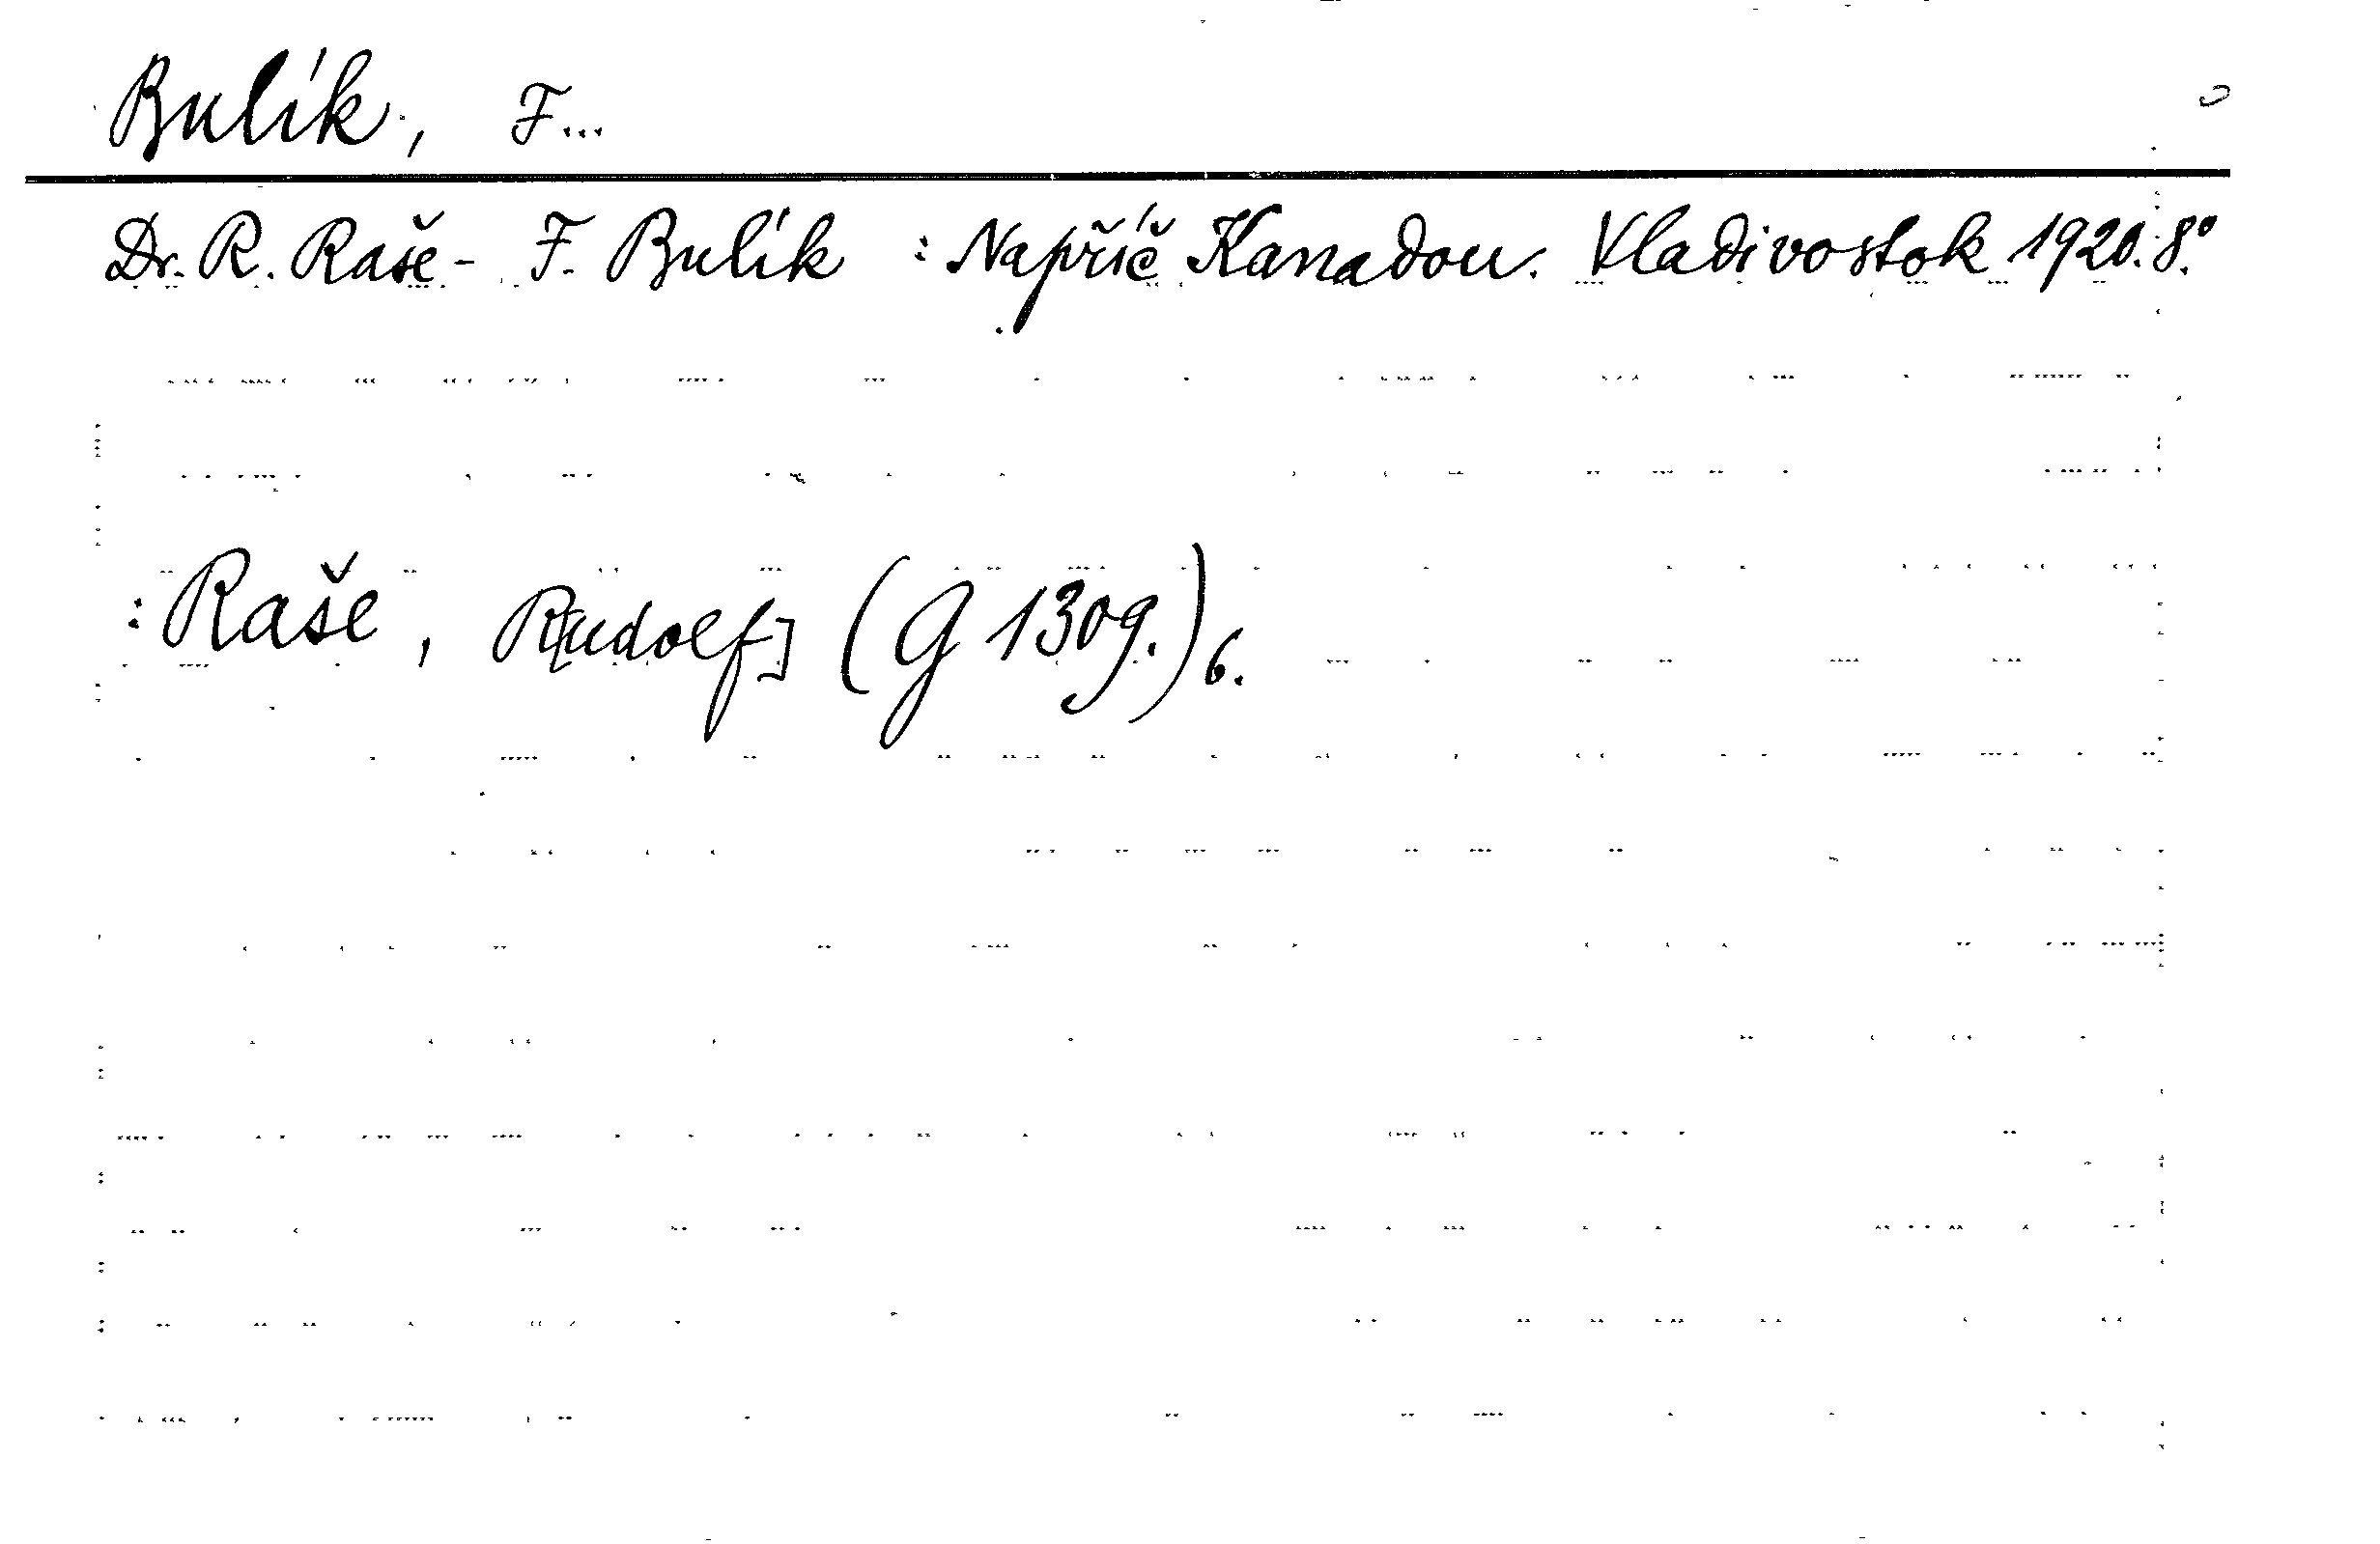 Bulík, F...
Dr. R. Raše - F. Bulík : Napříč Kanadou. Vladivostok 1920. 8.º
: Raše, R[udolf] (G 1309.) 6.